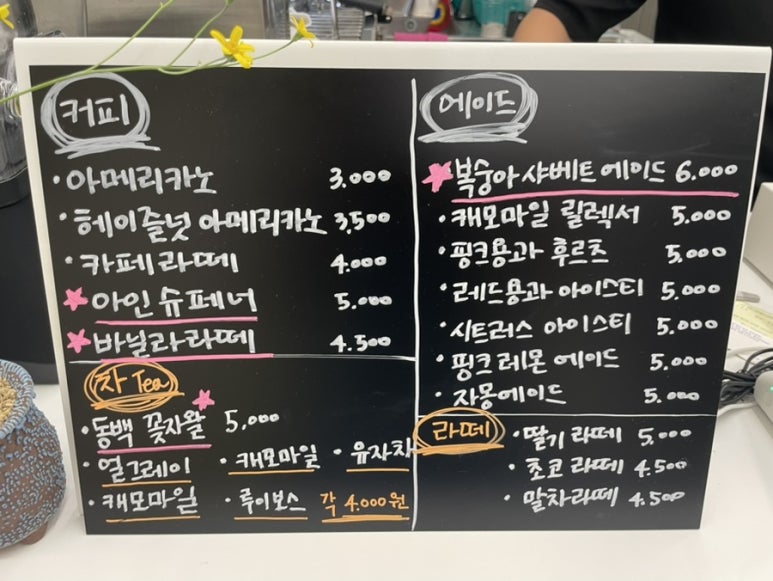 커피
아메리카노 3.000
헤이즐넛 아메리카노 3,500
카페라떼 4.000
아인슈페너 5.000
바닐라라떼 4.500
차 Tea
동백 꽃자왈 5,000
얼그레이 · 캐모마일 · 유자차
캐모마일 · 루이보스 각 4.000원
에이드
복숭아 샤베트 에이드 6.000
캐모마일 릴렉서 5.000
핑크용과 후르츠 5.000
레드용과 아이스티 5.000
시트러스 아이스티 5.000
핑크레몬 에이드 5.000
자몽에이드 5.000
라떼
딸기 라떼 5.000
초코 라떼 4.500
말차라떼 4.500